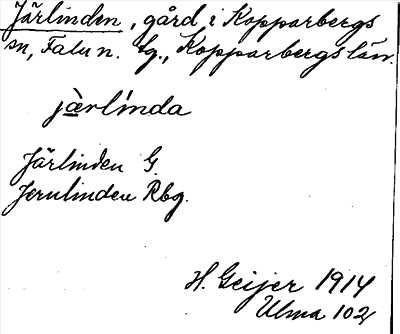 Järlinden, gård i Kopparbergs
sn, Falu n. tg., Kopparbergs län.
jàrlínda
Järlinden G.
Jernlinden Rbg.
H. Geijer 1914
Ulma 102